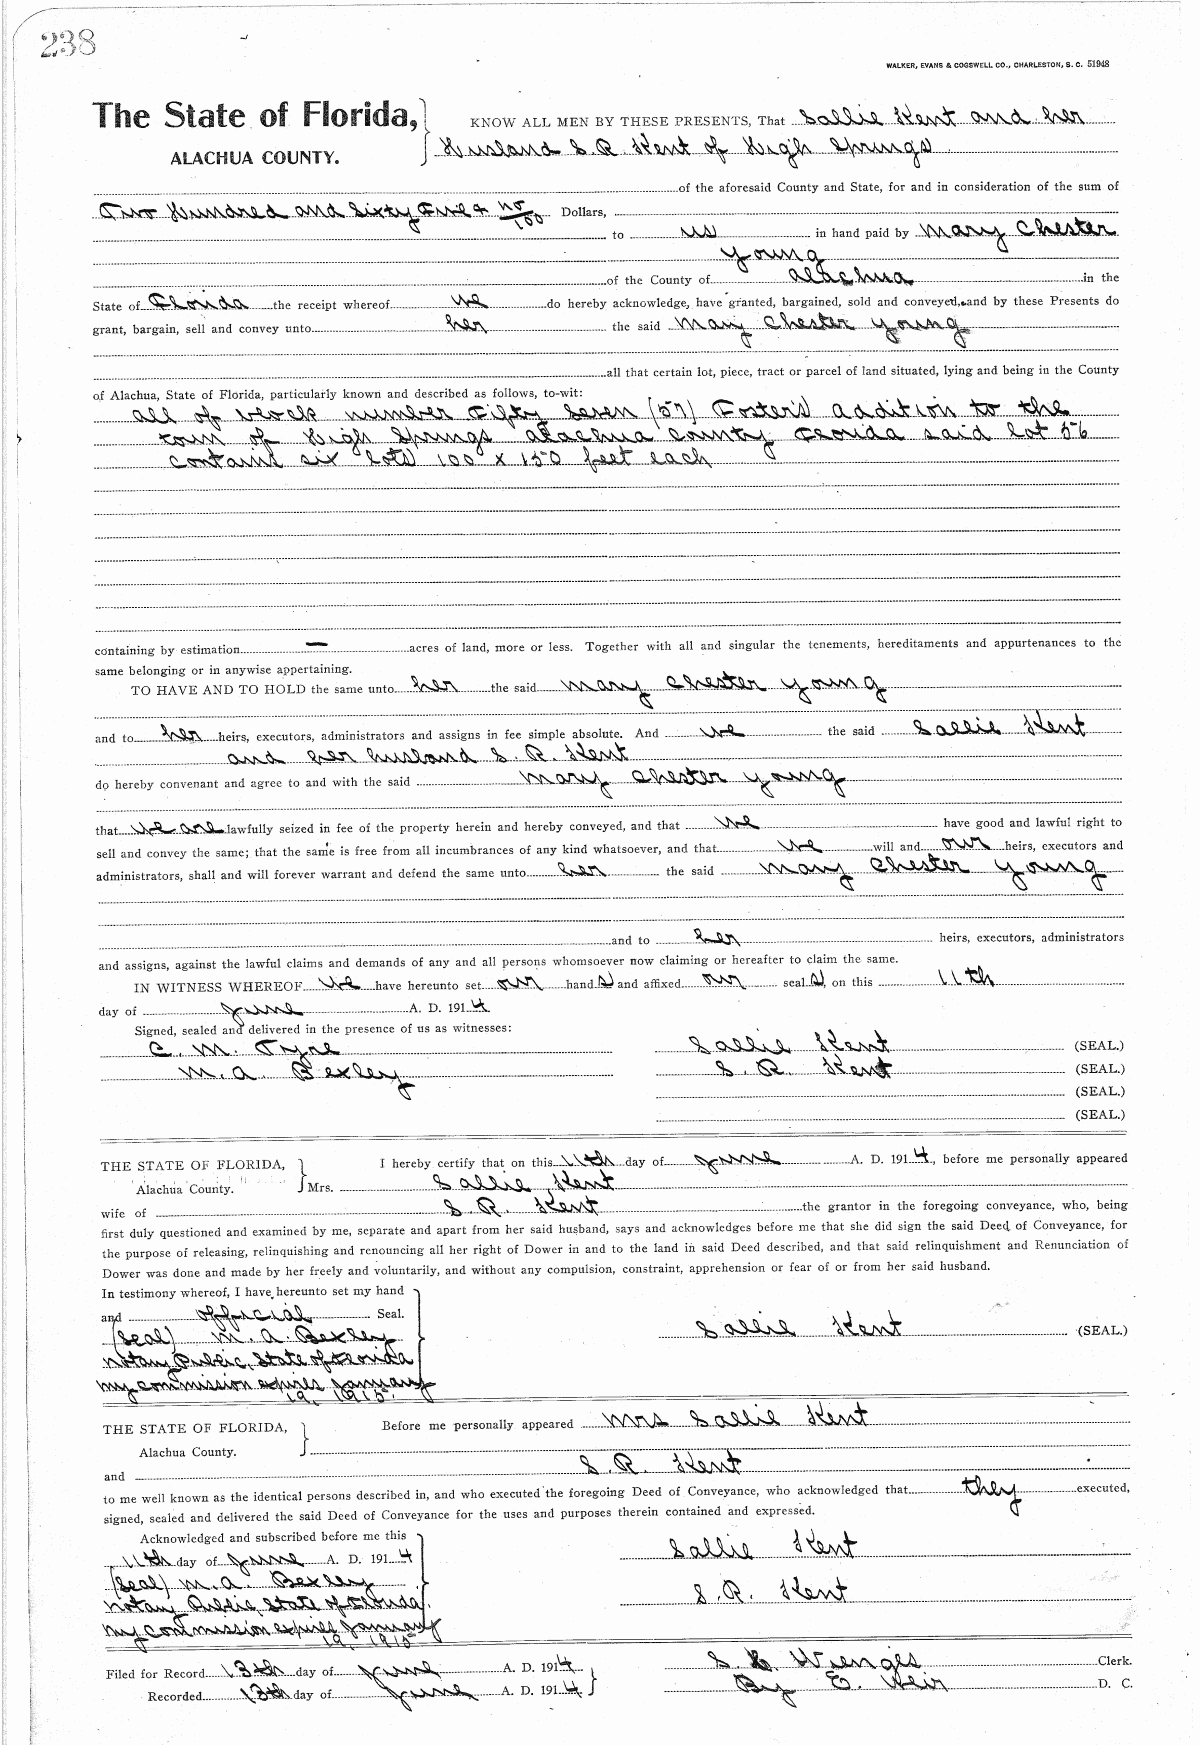 238
WALKER, EVANS & COGSWELL CO., CHARLESTON, S. C. 51948
The State of Florida,
ALACHUA COUNTY.
KNOW ALL MEN BY THESE PRESENTS, That Sallie Kent and her
Husland S. R. Kent of High Springs
of the aforesaid County and State, for and in consideration of the sum of
Two Hundred and Sixty Five & no/100 Dollars,
to us in hand paid by Mary Chester
Young
of the County of Alachua in the
State of Florida the receipt whereof we do hereby acknowledge, have granted, bargained, sold and conveyed, and by these Presents do
grant, bargain, sell and convey unto her the said Mary Chester Young
all that certain lot, piece, tract or parcel of land situated, lying and being in the County
of Alachua, State of Florida, particularly known and described as follows, to-wit:
all of block number Fifty Seven (57) Foster's addition to the
town of High Springs Alachua County Florida said lot 56
contains six lots 100 x 150 feet each
containing by estimation — acres of land, more or less. Together with all and singular the tenements, hereditaments and appurtenances to the
same belonging or in anywise appertaining.
TO HAVE AND TO HOLD the same unto her the said Mary Chester Young
and to her heirs, executors, administrators and assigns in fee simple absolute. And we the said Sallie Kent
and her husland S. R. Kent
do hereby convenant and agree to and with the said Mary Chester Young
that we are lawfully seized in fee of the property herein and hereby conveyed, and that we have good and lawful right to
sell and convey the same; that the same is free from all incumbrances of any kind whatsoever, and that we will and our heirs, executors and
administrators, shall and will forever warrant and defend the same unto her the said Mary Chester Young
and to her heirs, executors, administrators
and assigns, against the lawful claims and demands of any and all persons whomsoever now claiming or hereafter to claim the same.
IN WITNESS WHEREOF we have hereunto set our hand s and affixed our seal s, on this 11th
day of June A. D. 1914
Signed, sealed and delivered in the presence of us as witnesses:
C. M. Tyre Sallie Kent (SEAL.)
M. A. Bexley S. R. Kent (SEAL.)
(SEAL.)
(SEAL.)
THE STATE OF FLORIDA,
Alachua County.
I hereby certify that on this 11th day of June A. D. 1914, before me personally appeared
Mrs. Sallie Kent
wife of S. R. Kent the grantor in the foregoing conveyance, who, being
first duly questioned and examined by me, separate and apart from her said husband, says and acknowledges before me that she did sign the said Deed of Conveyance, for
the purpose of releasing, relinquishing and renouncing all her right of Dower in and to the land in said Deed described, and that said relinquishment and Renunciation of
Dower was done and made by her freely and voluntarily, and without any compulsion, constraint, apprehension or fear of or from her said husband.
In testimony whereof, I have hereunto set my hand
and official Seal.
(Seal) M. A. Bexley Sallie Kent (SEAL.)
Notary Public, State of Florida
My commission expires January
19, 1915.
THE STATE OF FLORIDA,
Alachua County.
Before me personally appeared Mrs Sallie Kent
and S. R. Kent
to me well known as the identical persons described in, and who executed the foregoing Deed of Conveyance, who acknowledged that they executed,
signed, sealed and delivered the said Deed of Conveyance for the uses and purposes therein contained and expressed.
Acknowledged and subscribed before me this
11th day of June A. D. 1914 Sallie Kent
(Seal) M. A. Bexley S. R. Kent
Notary Public, State of Florida.
My commission expires January
19, 1915
Filed for Record 13th day of June A. D. 1914 S. Wienges Clerk.
Recorded 13th day of June A. D. 1914 By E. Weir D. C.